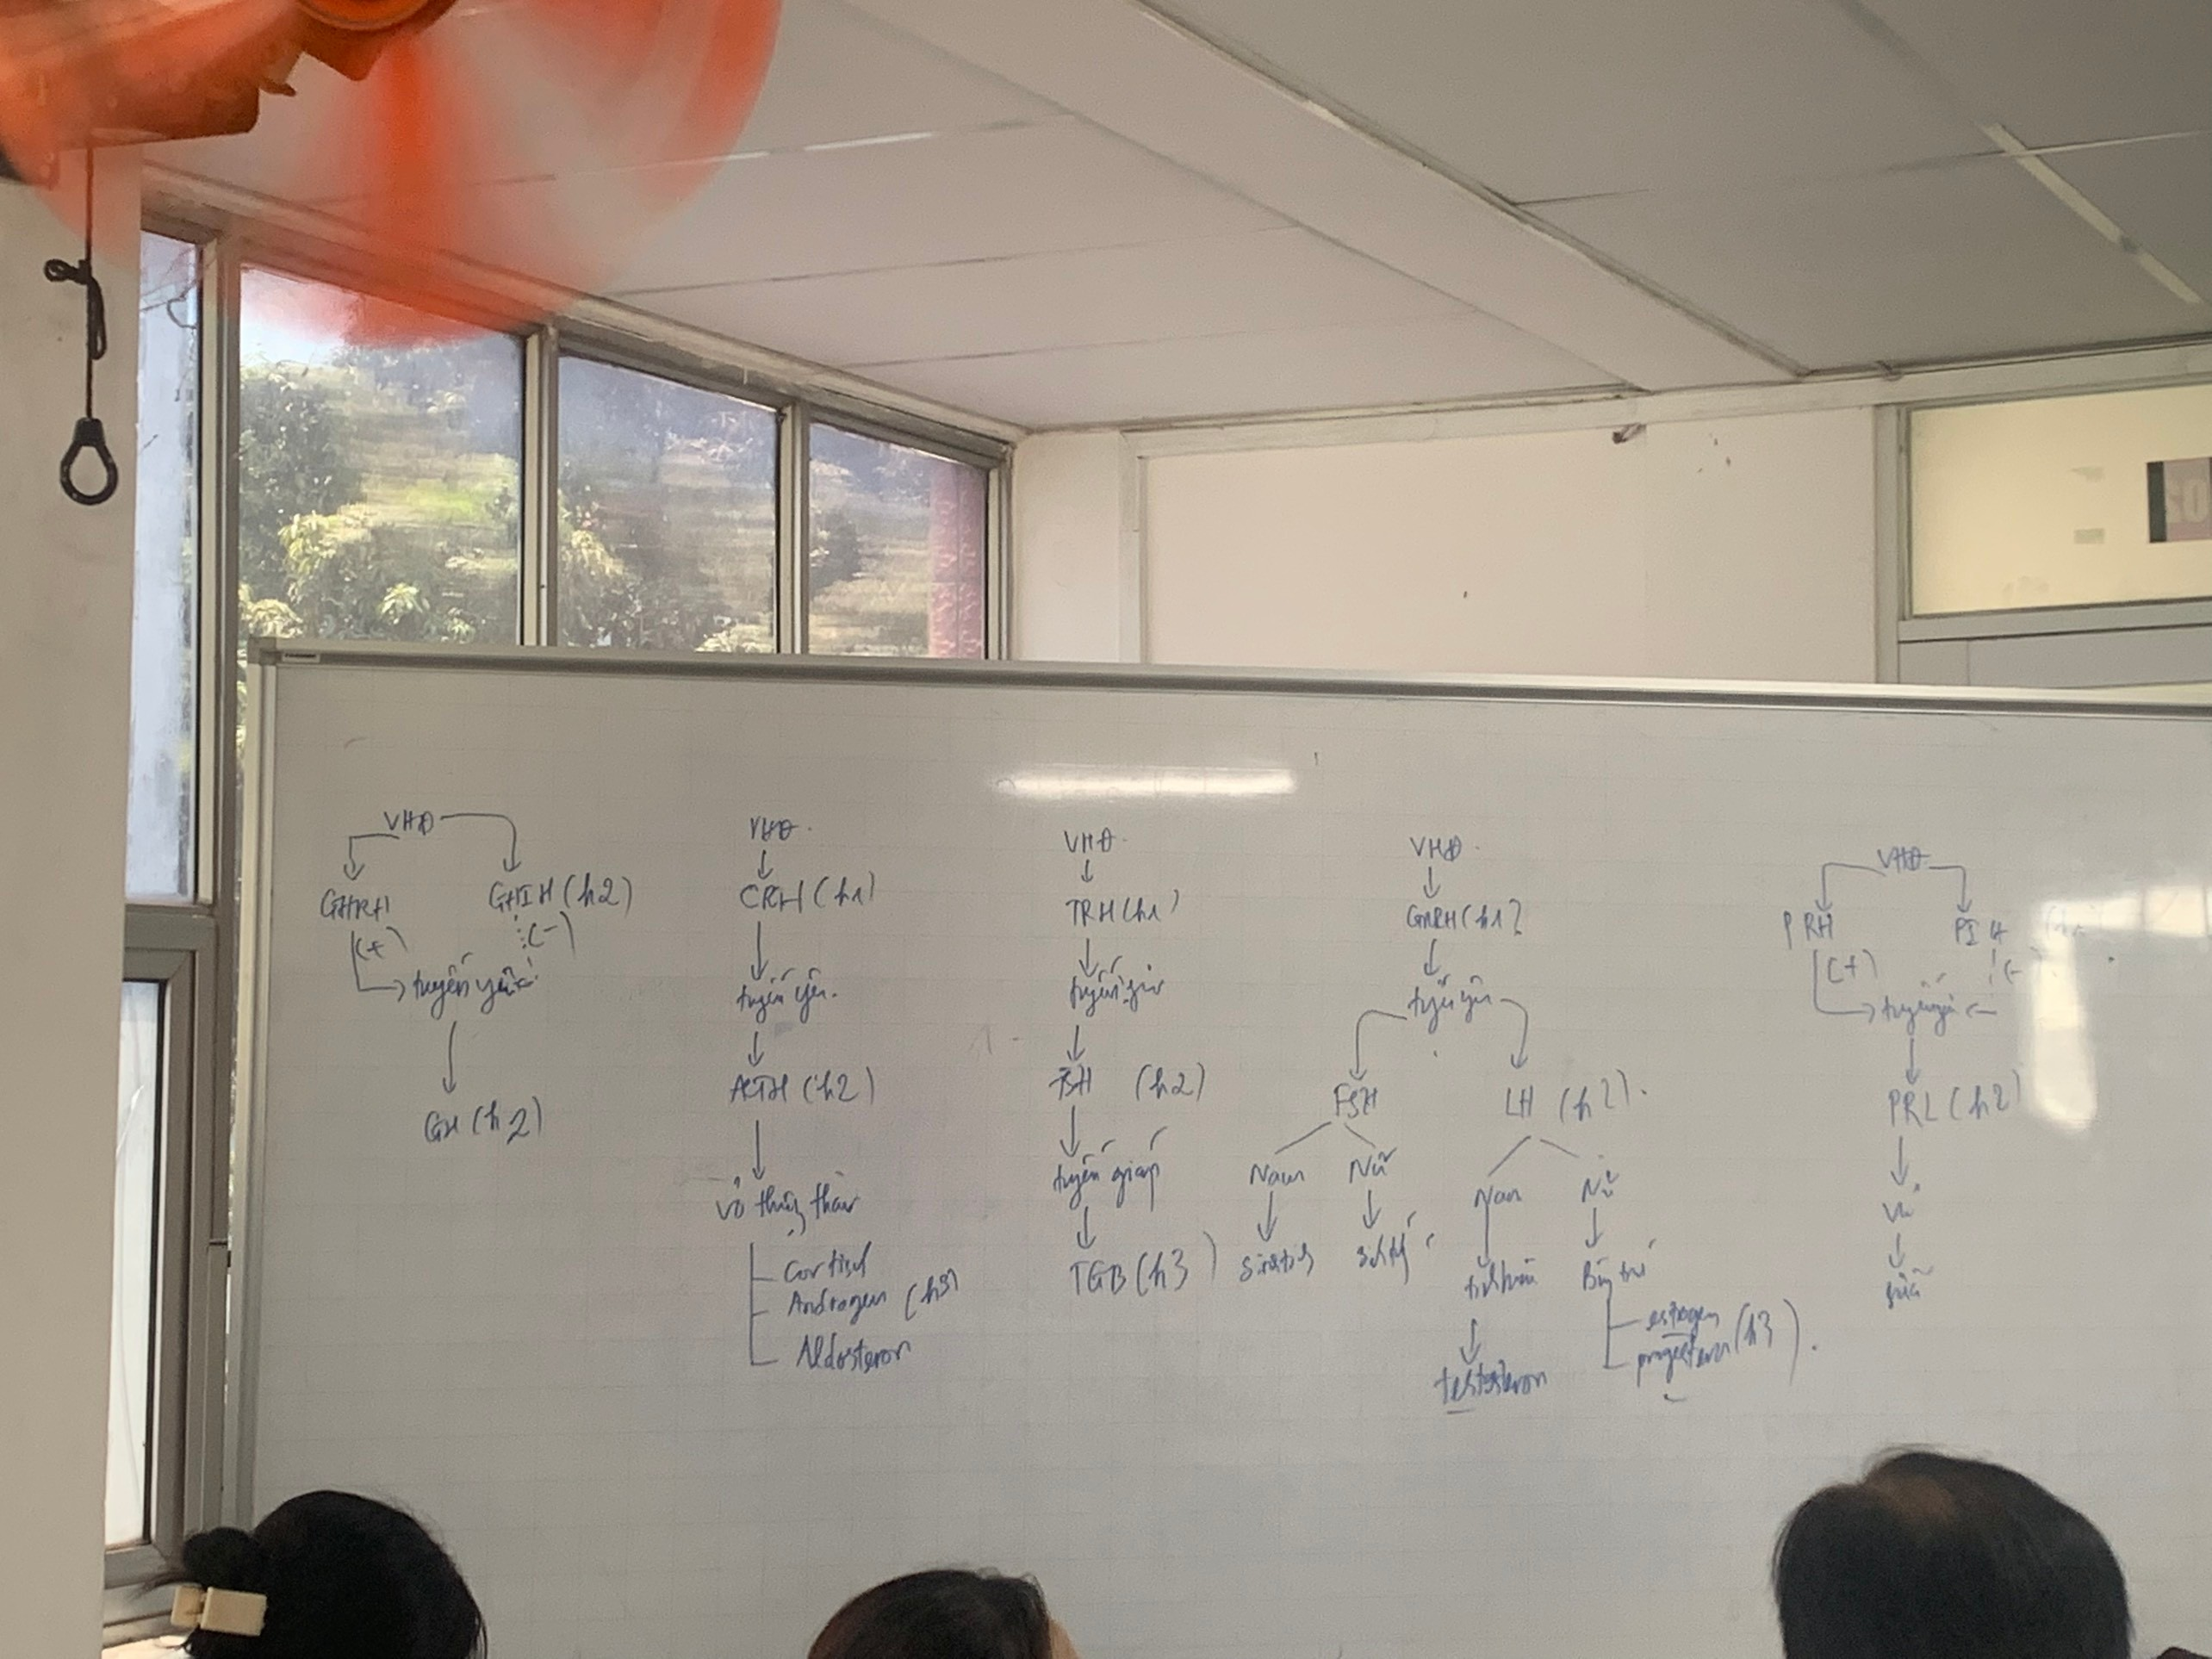 VHĐ
GHRH
GHIH (h2)
(+)
(-)
tuyến yên
GH (h2)
VHĐ
CRH (h1)
tuyến yên
ACTH (h2)
vỏ thượng thận
Cortisol
Androgen (h3)
Aldosteron
VHĐ
TRH (h1)
tuyến yên
TSH (h2)
tuyến giáp
TGB (h3)
VHĐ
GnRH (h1)
tuyến yên
FSH
LH (h2)
Nam
Nữ
Nam
Nữ
testosteron
estrogen
progesteron (h3)
VHĐ
PRH
PIH
(+)
(-
tuyến yên
PRL (h2)
Vú
sữa